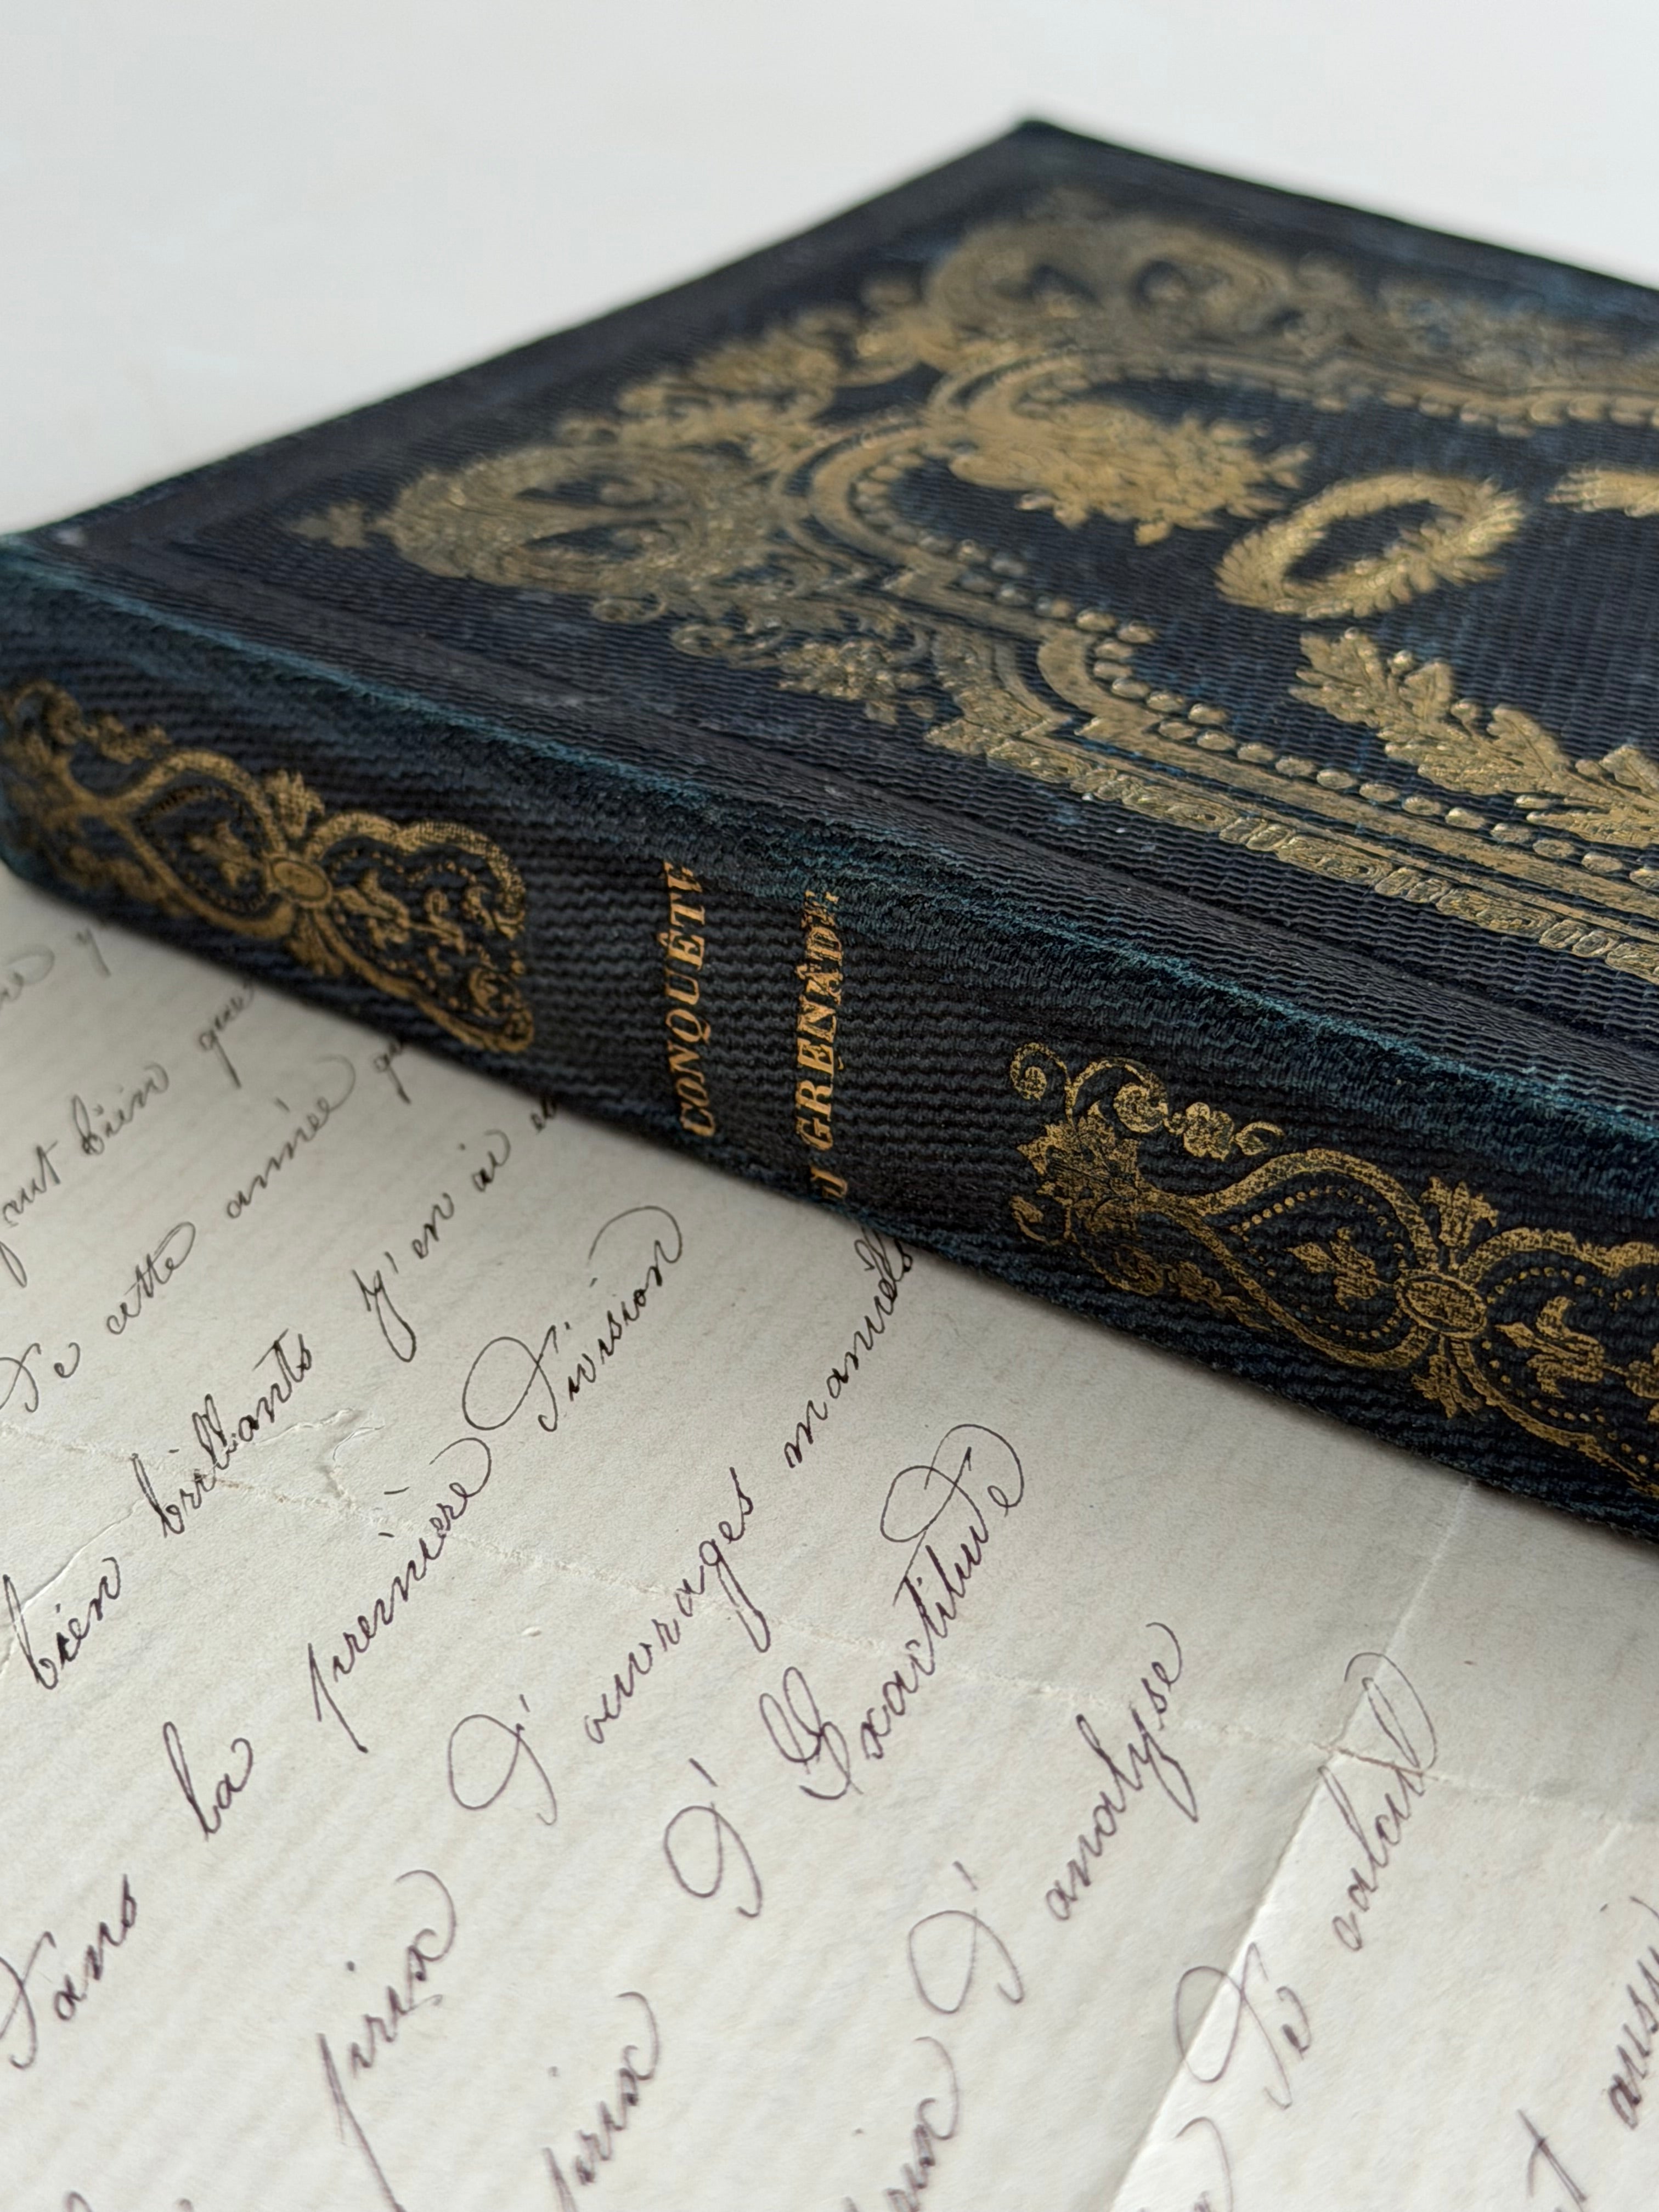 CONQUÊTE
GRENADE.
faut bien que
De cette année
bien brillants J'en ai
Dans la première Division
prix D'ouvrages manuels
prix D'Exactitude
D'analyse
De calcul